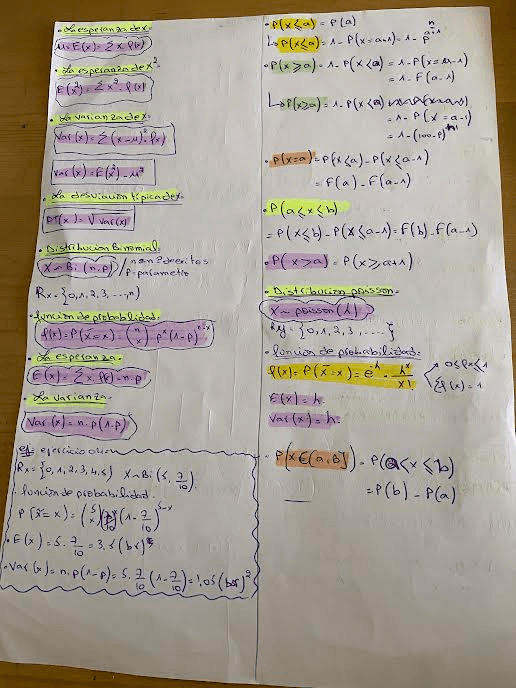 • La esperanza de x:
μ = E(x) = Σ x P(x)
• La esperanza de x²
E(x²) = Σ x² · P(x)
• La varianza de x:
Var(x) = Σ (x-μ)² · P(x)
Var(x) = E(x²) - μ²
• La desviación típica de x:
DT(x) = √Var(x)
• Distribución Binomial
X ~ Bi (n,p) / n = nº de exitos
p = parametro
Rx = {0,1,2,3,...,n}
• función de probabilidad:
P(x) = P(X=x) = (n x) p^x (1-p)^n-x
• La esperanza:
E(x) = Σ x. P(x) = n.p
• La varianza
Var(x) = n.p (1-p)
ej: ejercicio
Rx = {0,1,2,3,4,5} X ~ Bi (5, 7/10)
• función de probabilidad:
P(X=x) = (5 x) (1 - 7/10)^5-x
• E(x) = 5. 7/10 = 3,5
• Var(x) = n.p(1-p) = 5. 7/10 (1 - 7/10) = 1,05
• P(x≤a) = P(a)
↳ P(x≤a) = 1 -
• P(x≥a) = 1 - P(x<a) = 1 -
= 1 - F(a-1)
↳ P(x≥a) = 1 - P(x<a)
= 1 - P(X = a-1)
= 1 -
• P(x=a) = P(x≤a) - P(x≤a-1)
= F(a) - F(a-1)
• P(a≤x≤b)
= P(x≤b) - P(x≤a-1) = F(b) - F(a-1)
• P(x>a) = P(x≥a+1)
• Distribución poisson:
X ~ poisson (λ)
= {0,1,2,3,...}
• función de probabilidad:
P(x) = P(X=x) = e^-λ · λ^x / x! 0≤Px≤1
ΣP(x) = 1
E(x) = λ.
Var(x) = λ.
• P(X∈(a,b]) = P(a<x≤b)
= P(b) - P(a)